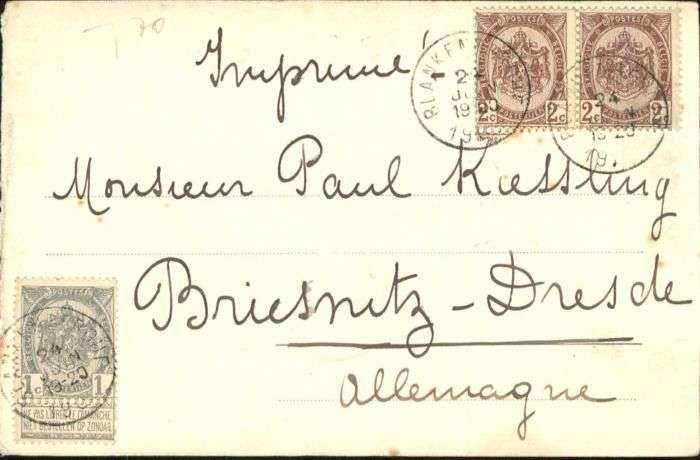 T 70
Imprimé
Monsieur Paul Koessling
Briesnitz-Dresde
Allemagne
POSTES
2c 2c
POSTES
2c
24
JUIN
19-20
24
19-20
POSTES
1c 1c
NE PAS LIVRER LE DIMANCHE
NIET BESTELLEN OP ZONDAG
24
JUIN
19-20